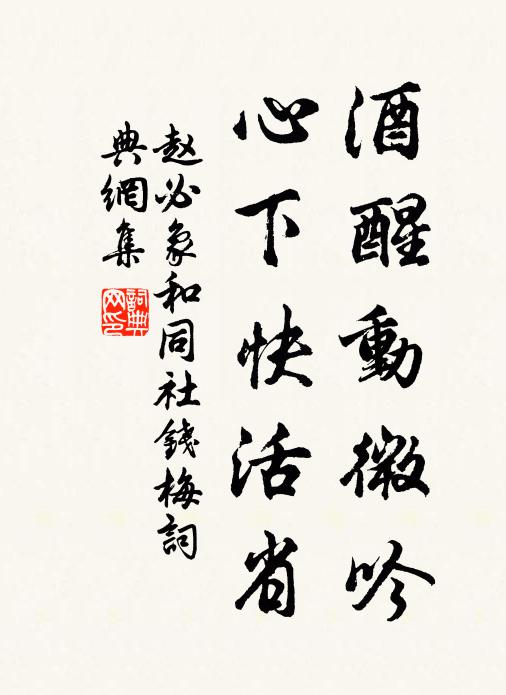 酒醒動微吟
心下快活省
赵必象和同社錢梅詞
典網集
詞典網印